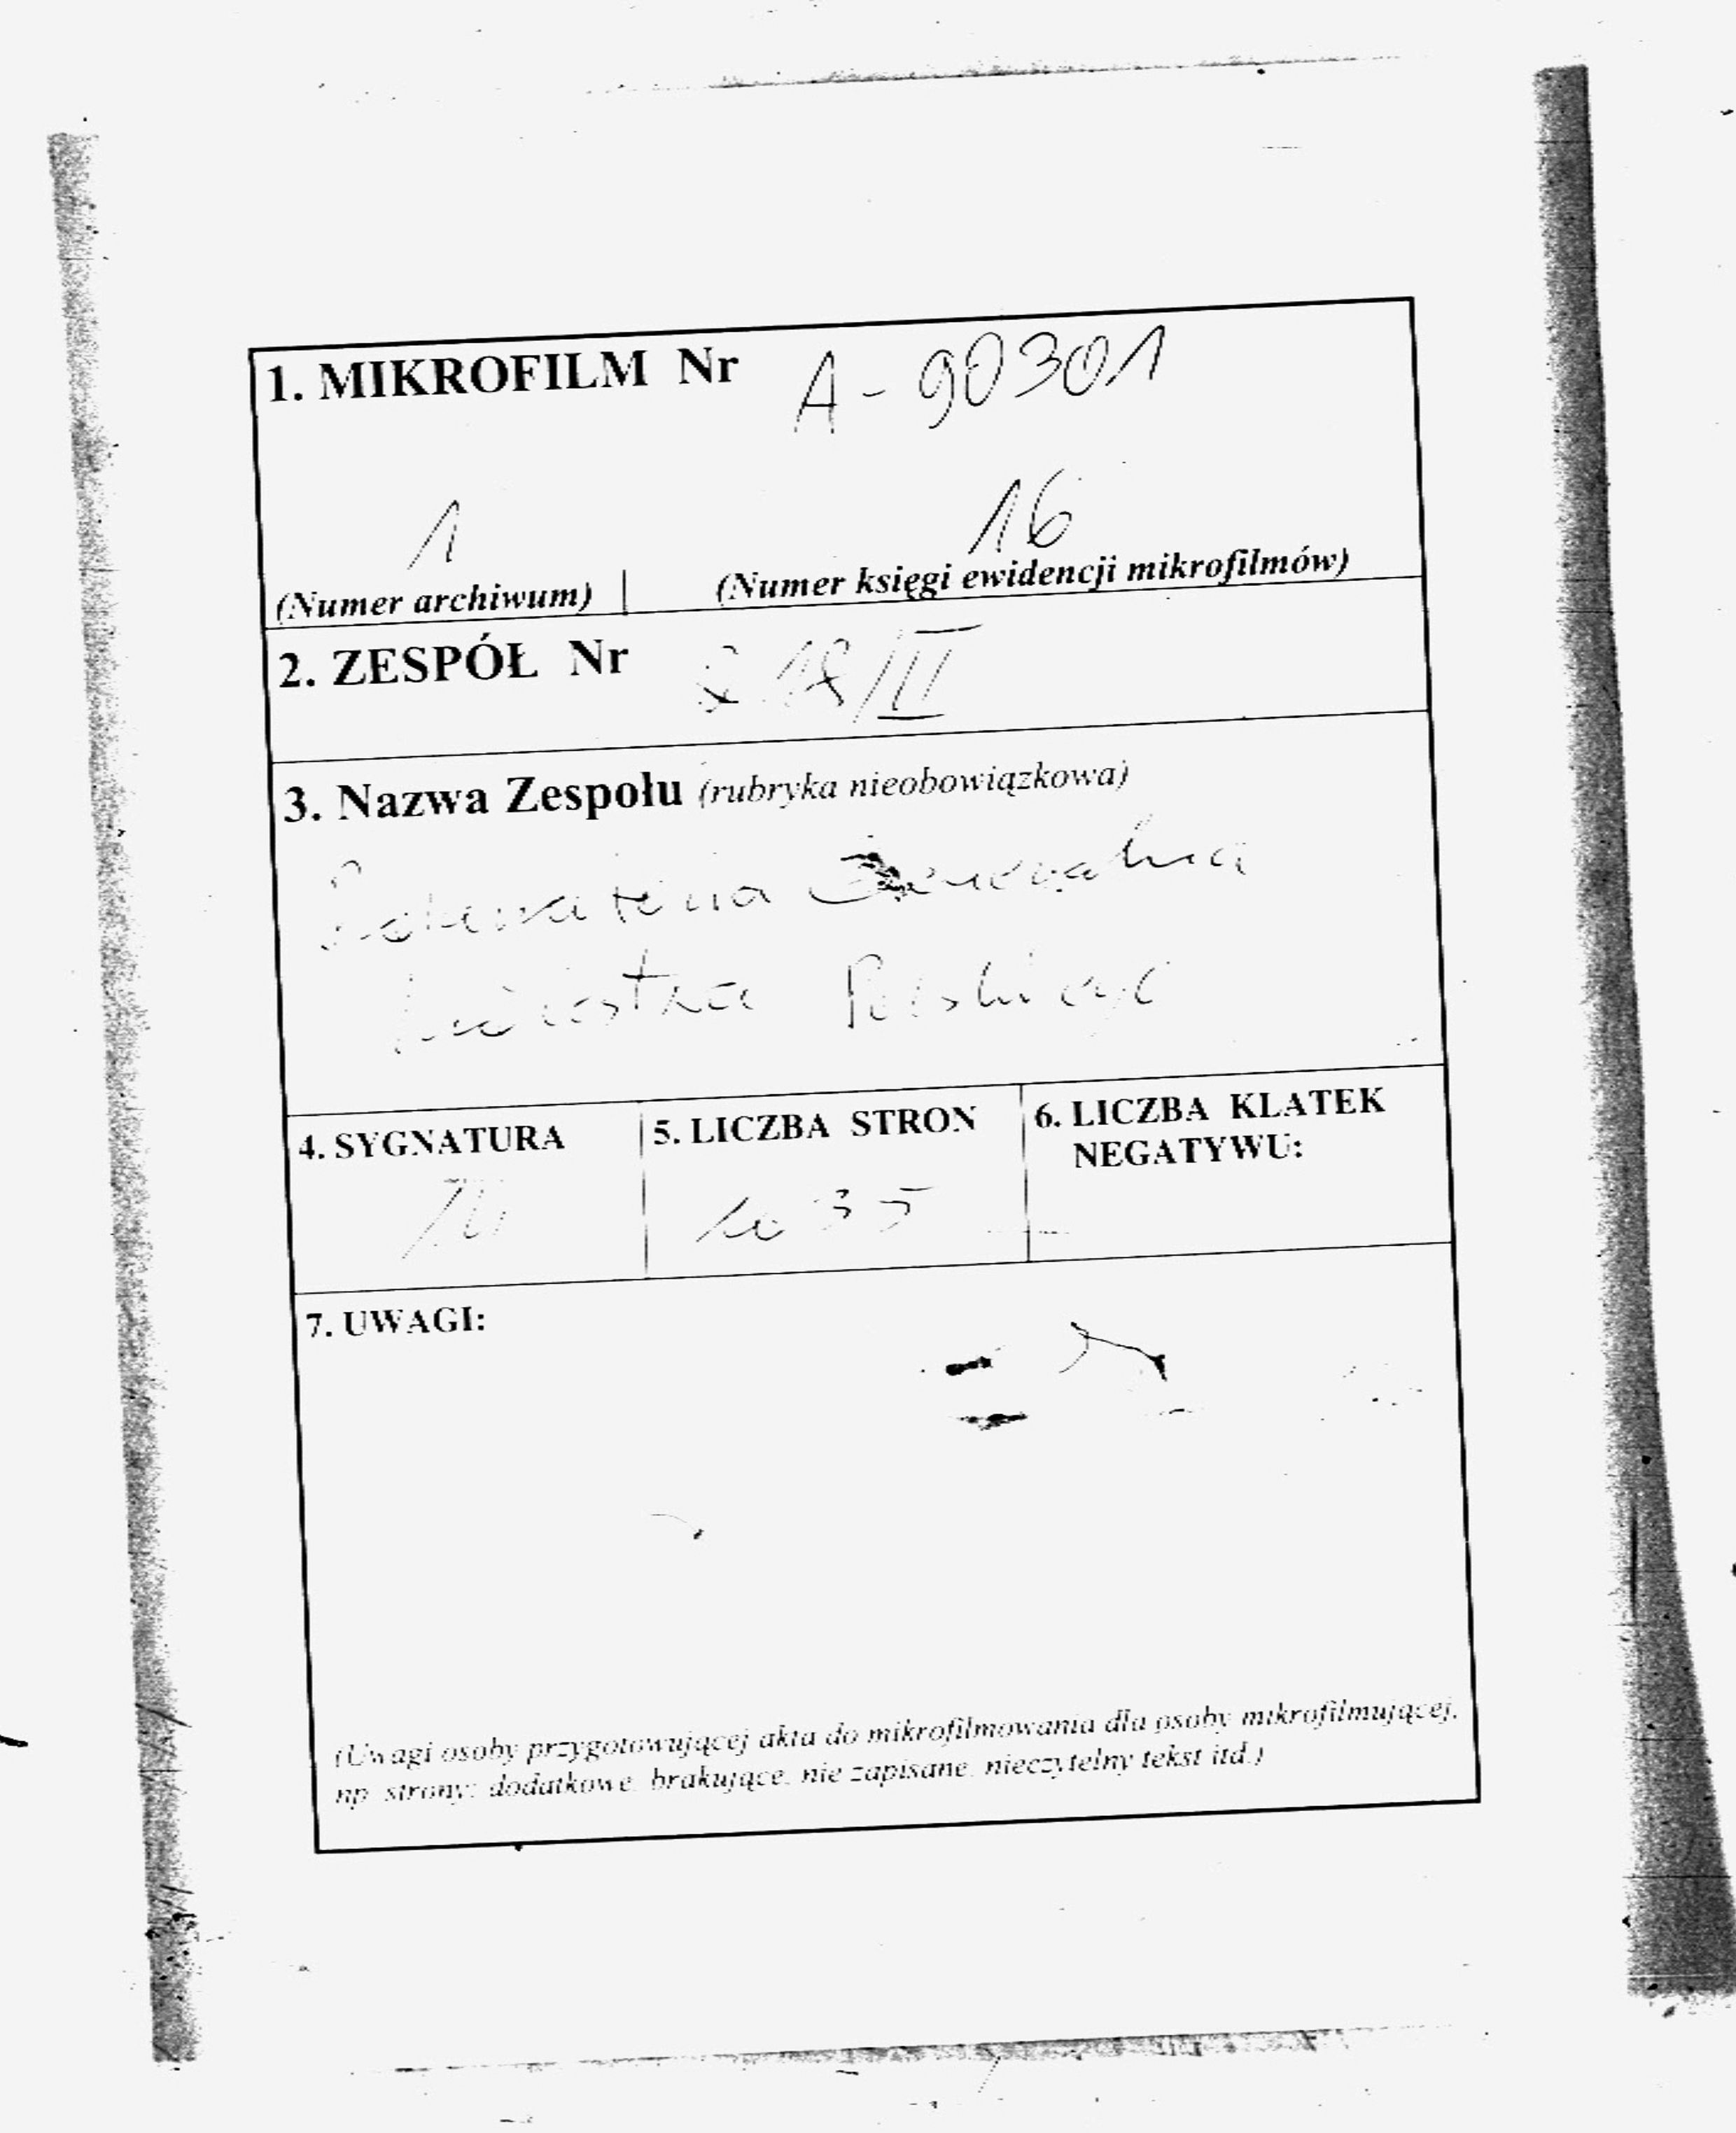 1. MIKROFILM Nr A-90301
1 16
(Numer archiwum) (Numer księgi ewidencji mikrofilmów)
2. ZESPÓŁ Nr /III
3. Nazwa Zespołu (rubryka nieobowiązkowa)
Prokuratoria Generalna
Królestwa Polskiego
4. SYGNATURA 5. LICZBA STRON 6. LICZBA KLATEK
NEGATYWU:
7. UWAGI:
(Uwagi osoby przygotowującej akta do mikrofilmowania dla osoby mikrofilmującej,
np. strony: dodatkowe, brakujące, nie zapisane, nieczytelny tekst itd.)